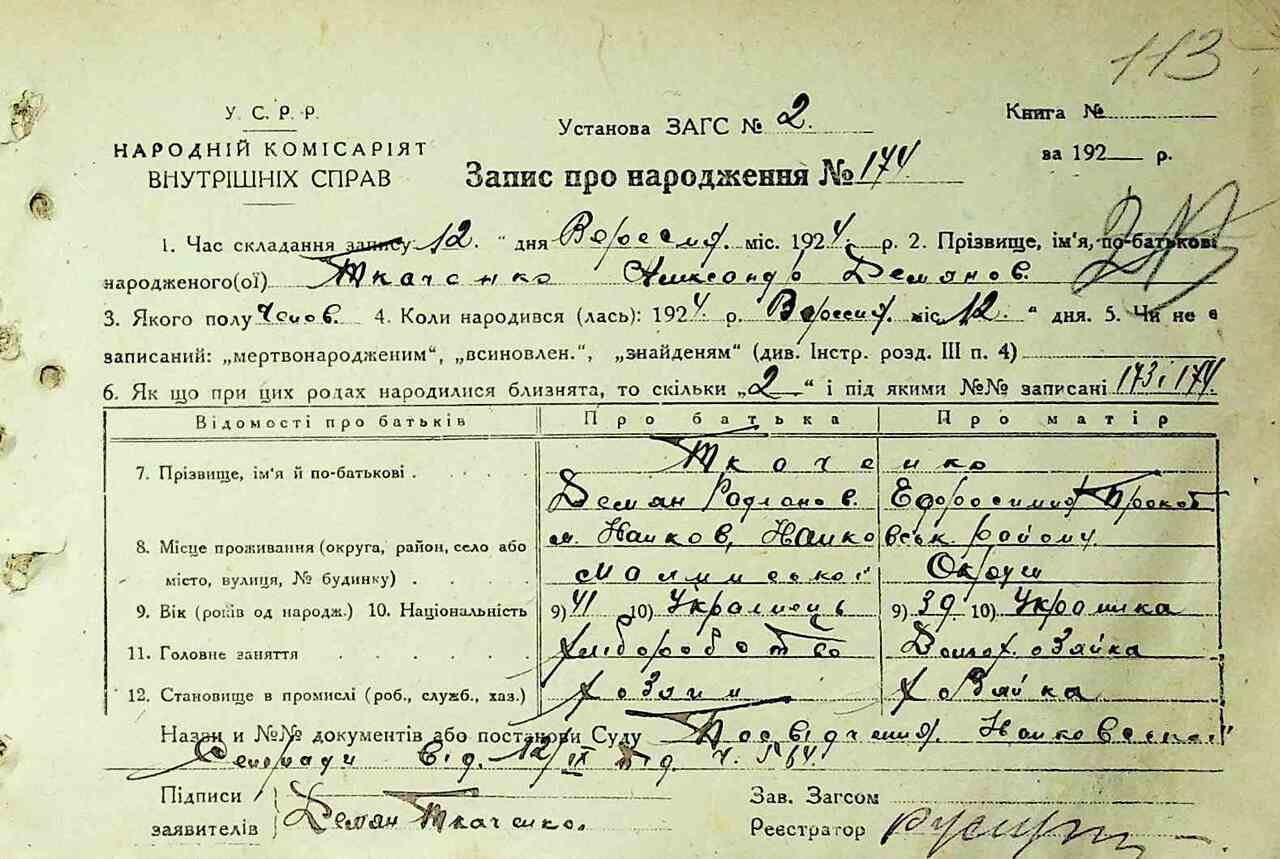 113
У. С. Р. Р.
НАРОДНІЙ КОМІСАРІЯТ
ВНУТРІШНІХ СПРАВ
Установа ЗАГС № 2.
Книга №
за 192 р.
Запис про народження № 174
1. Час складання запису 12. " дня Вересня. міс. 1924. р. 2. Прізвище, ім'я, по-батькові
народженого(ої) Ткаченко Александр Демянов.
3. Якого полу Чолов. 4. Коли народився (лась): 1924. р. Вересня. міс. 12. " дня. 5. Чи не є
записаний: „мертвонародженим“, „всиновлен.“, „знайденям“ (див. Інстр. розд. III п. 4)
6. Як що при цих родах народилися близнята, то скільки „2“ і під якими №№ записані 173 і 174.
Відомості про батьків Про батька Про матір
7. Прізвище, ім'я й по-батькові . . . . Ткаченко
Демян Родіонов. Ефросиния Прокоп
8. Місце проживання (округа, район, село або м. Наков, Нако вськ. району.
місто, вулиця, № будинку) . . . . Малинської Округи
9. Вік (років од народж.) 10. Національність 9) 41 10) Українець 9) 39 10) Українка
11. Головне заняття . . . . . Хлібороботво Домог. озяйка
12. Становище в промислі (роб., служб., хаз.) Хозяин Хозяйка
Назви и №№ документів або постанови Суду Посвідчення. Наковської
Сельради Від. 12/IX
Підписи
заявителів Демян Ткаченко.
Зав. Загсом
Реєстратор